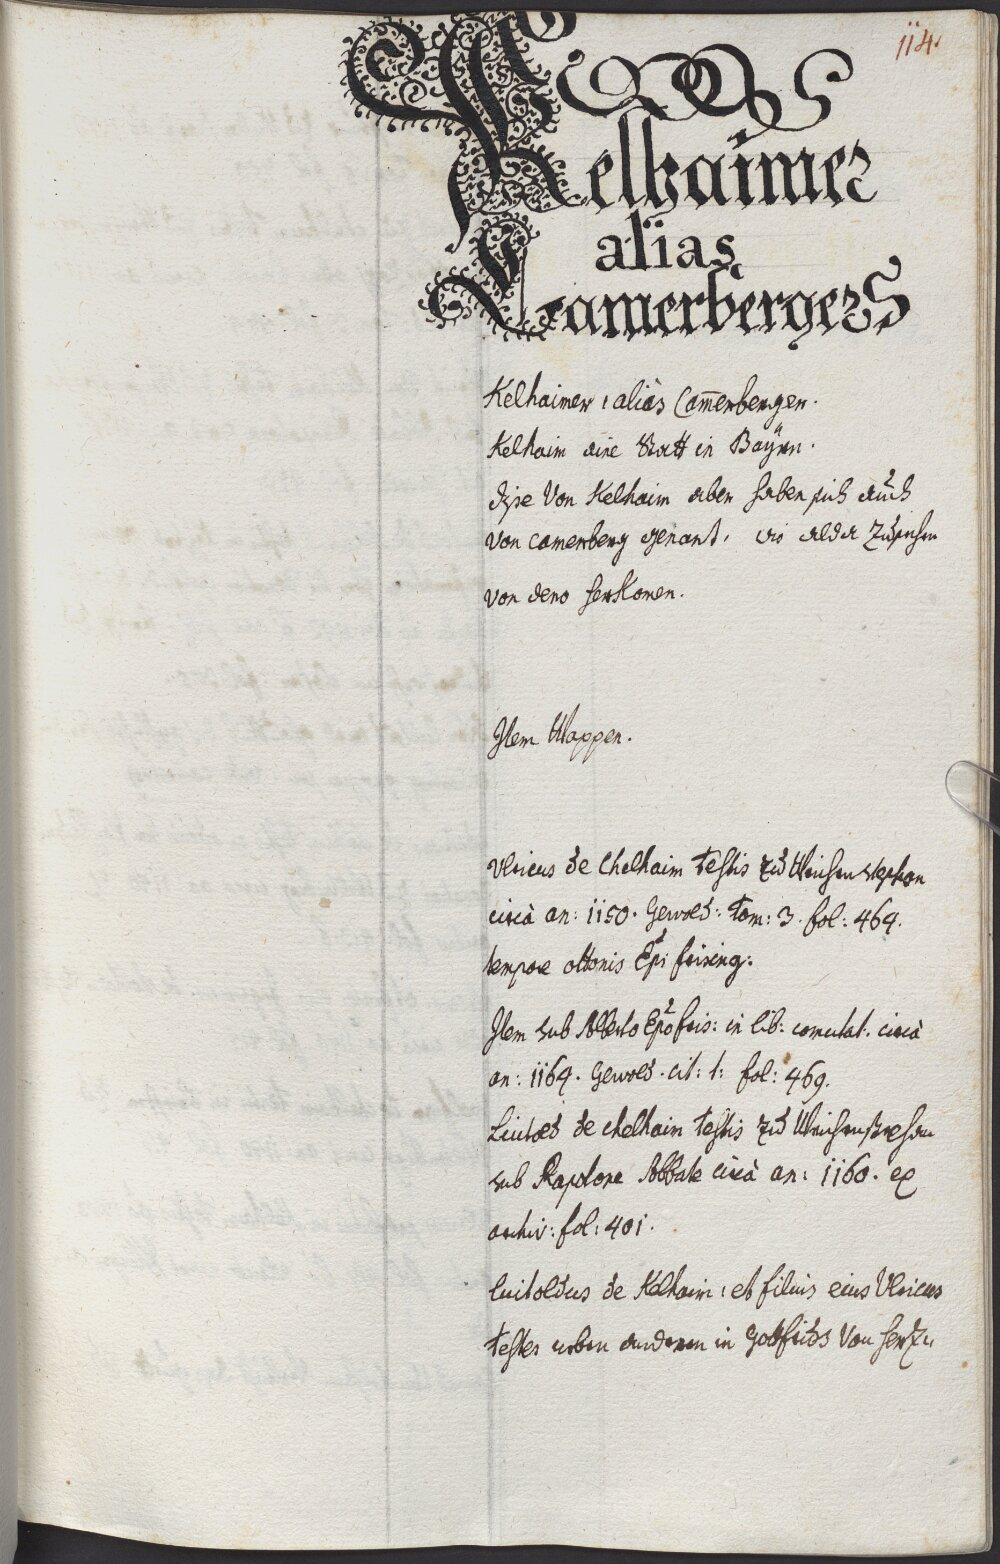 114.
Kelhaimer
alias
Camerberger
Kelhaimer : aliàs Cam̄erbergen.
Kelhaim aine Statt in Baÿrn.
dise Von Kelhaim aber haben sich auch
von Camerberg genant, wie alda Zusehen
von dero herkomen.
Item Wappen.
Vlricus de Chelhaim testis zu Weichenstephan
circà an: 1150. Gewold: tom: 3. fol: 469.
tempore ottonis Epi frising:
Item sub Alberto Epo fris: in lib: comutat. circà
an: 1169. Gewold. cit: t: fol: 469.
Liutold de chelhaim testis zu Weichenstephan
sub Raptone Abbate circà an: 1160. ex
archiv: fol: 401.
luitoldus de Kelhaim : et filius eius Vlricus
testes neben anderen in Gottfrids Von